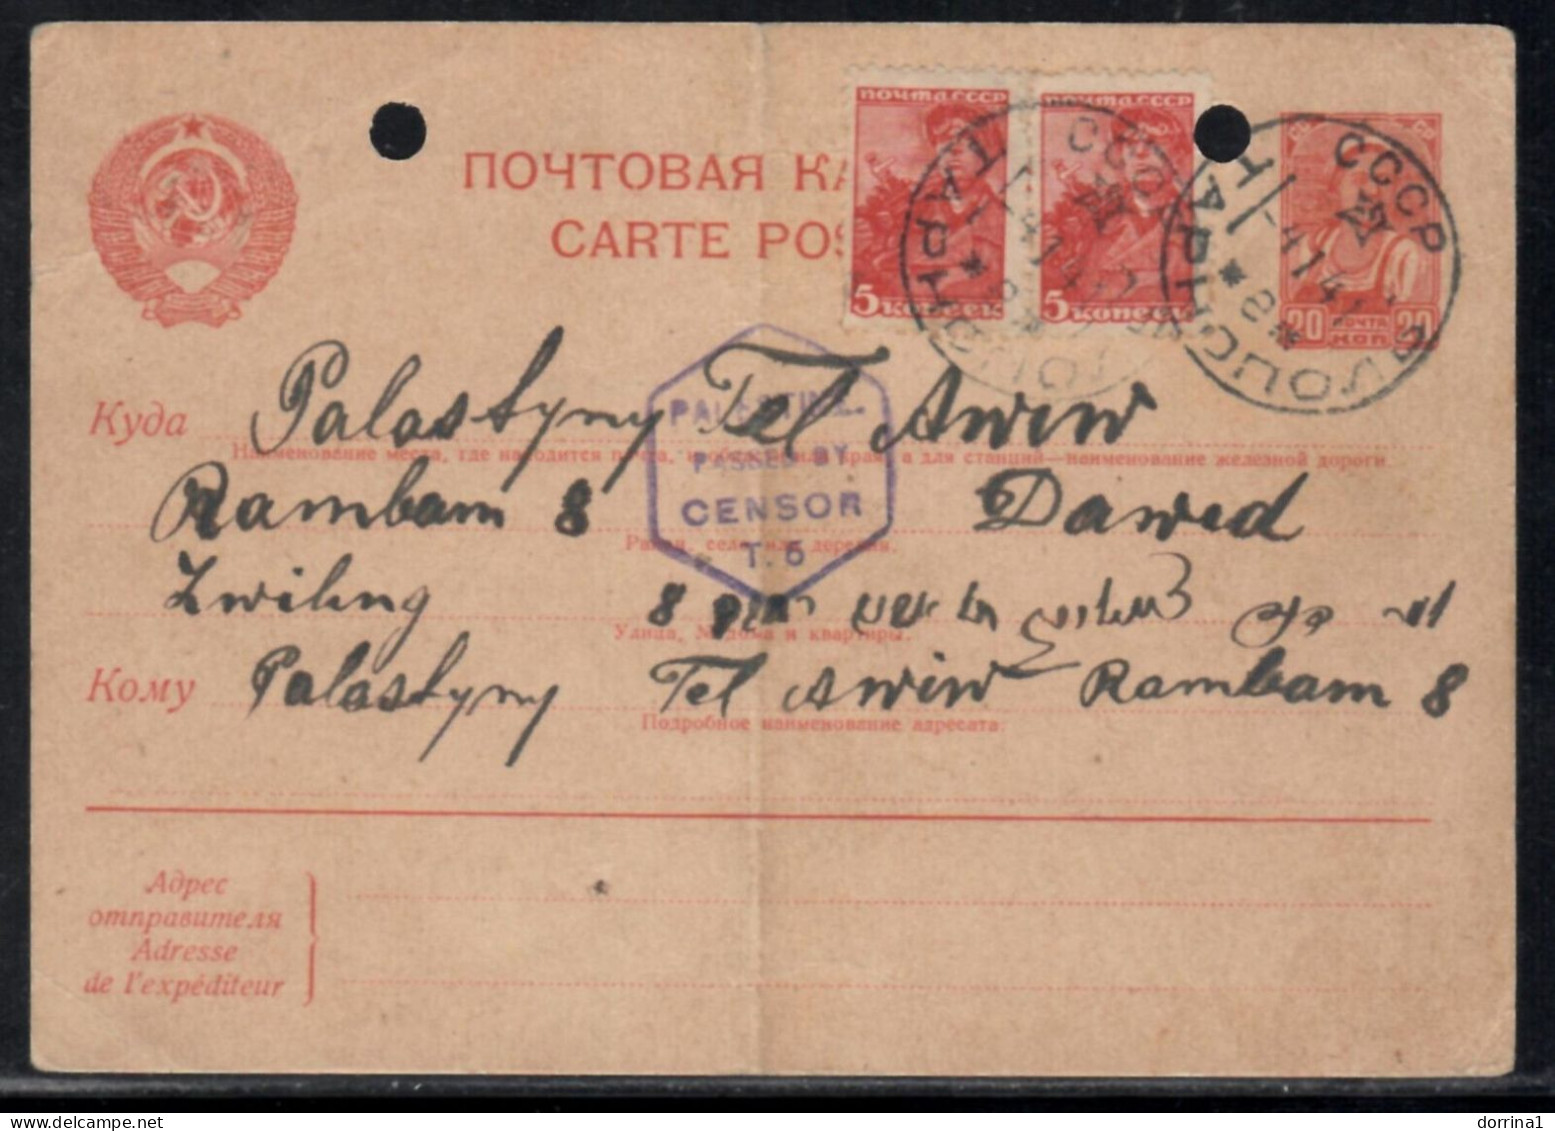 ПОЧТОВАЯ КА
CARTE POS
ПОЧТА СССР
5 копеек
ПОЧТА СССР
5 копеек
20 ПОЧТА КОП 20
СССР
СССР
PALESTINE.
PASSED BY
CENSOR
T. 5
Куда Palastyny Tel Awiw
Наименование места, где находится почта, и области или края, а для станций—наименование железной дороги.
Rambam 8 Dawed
Район, село или деревня.
Zwiling
Улица, № дома и квартиры.
Кому Palastyny Tel Awiw Rambam 8
Подробное наименование адресата.
Адрес
отправителя
Adresse
de l'expéditeur
dorrina1